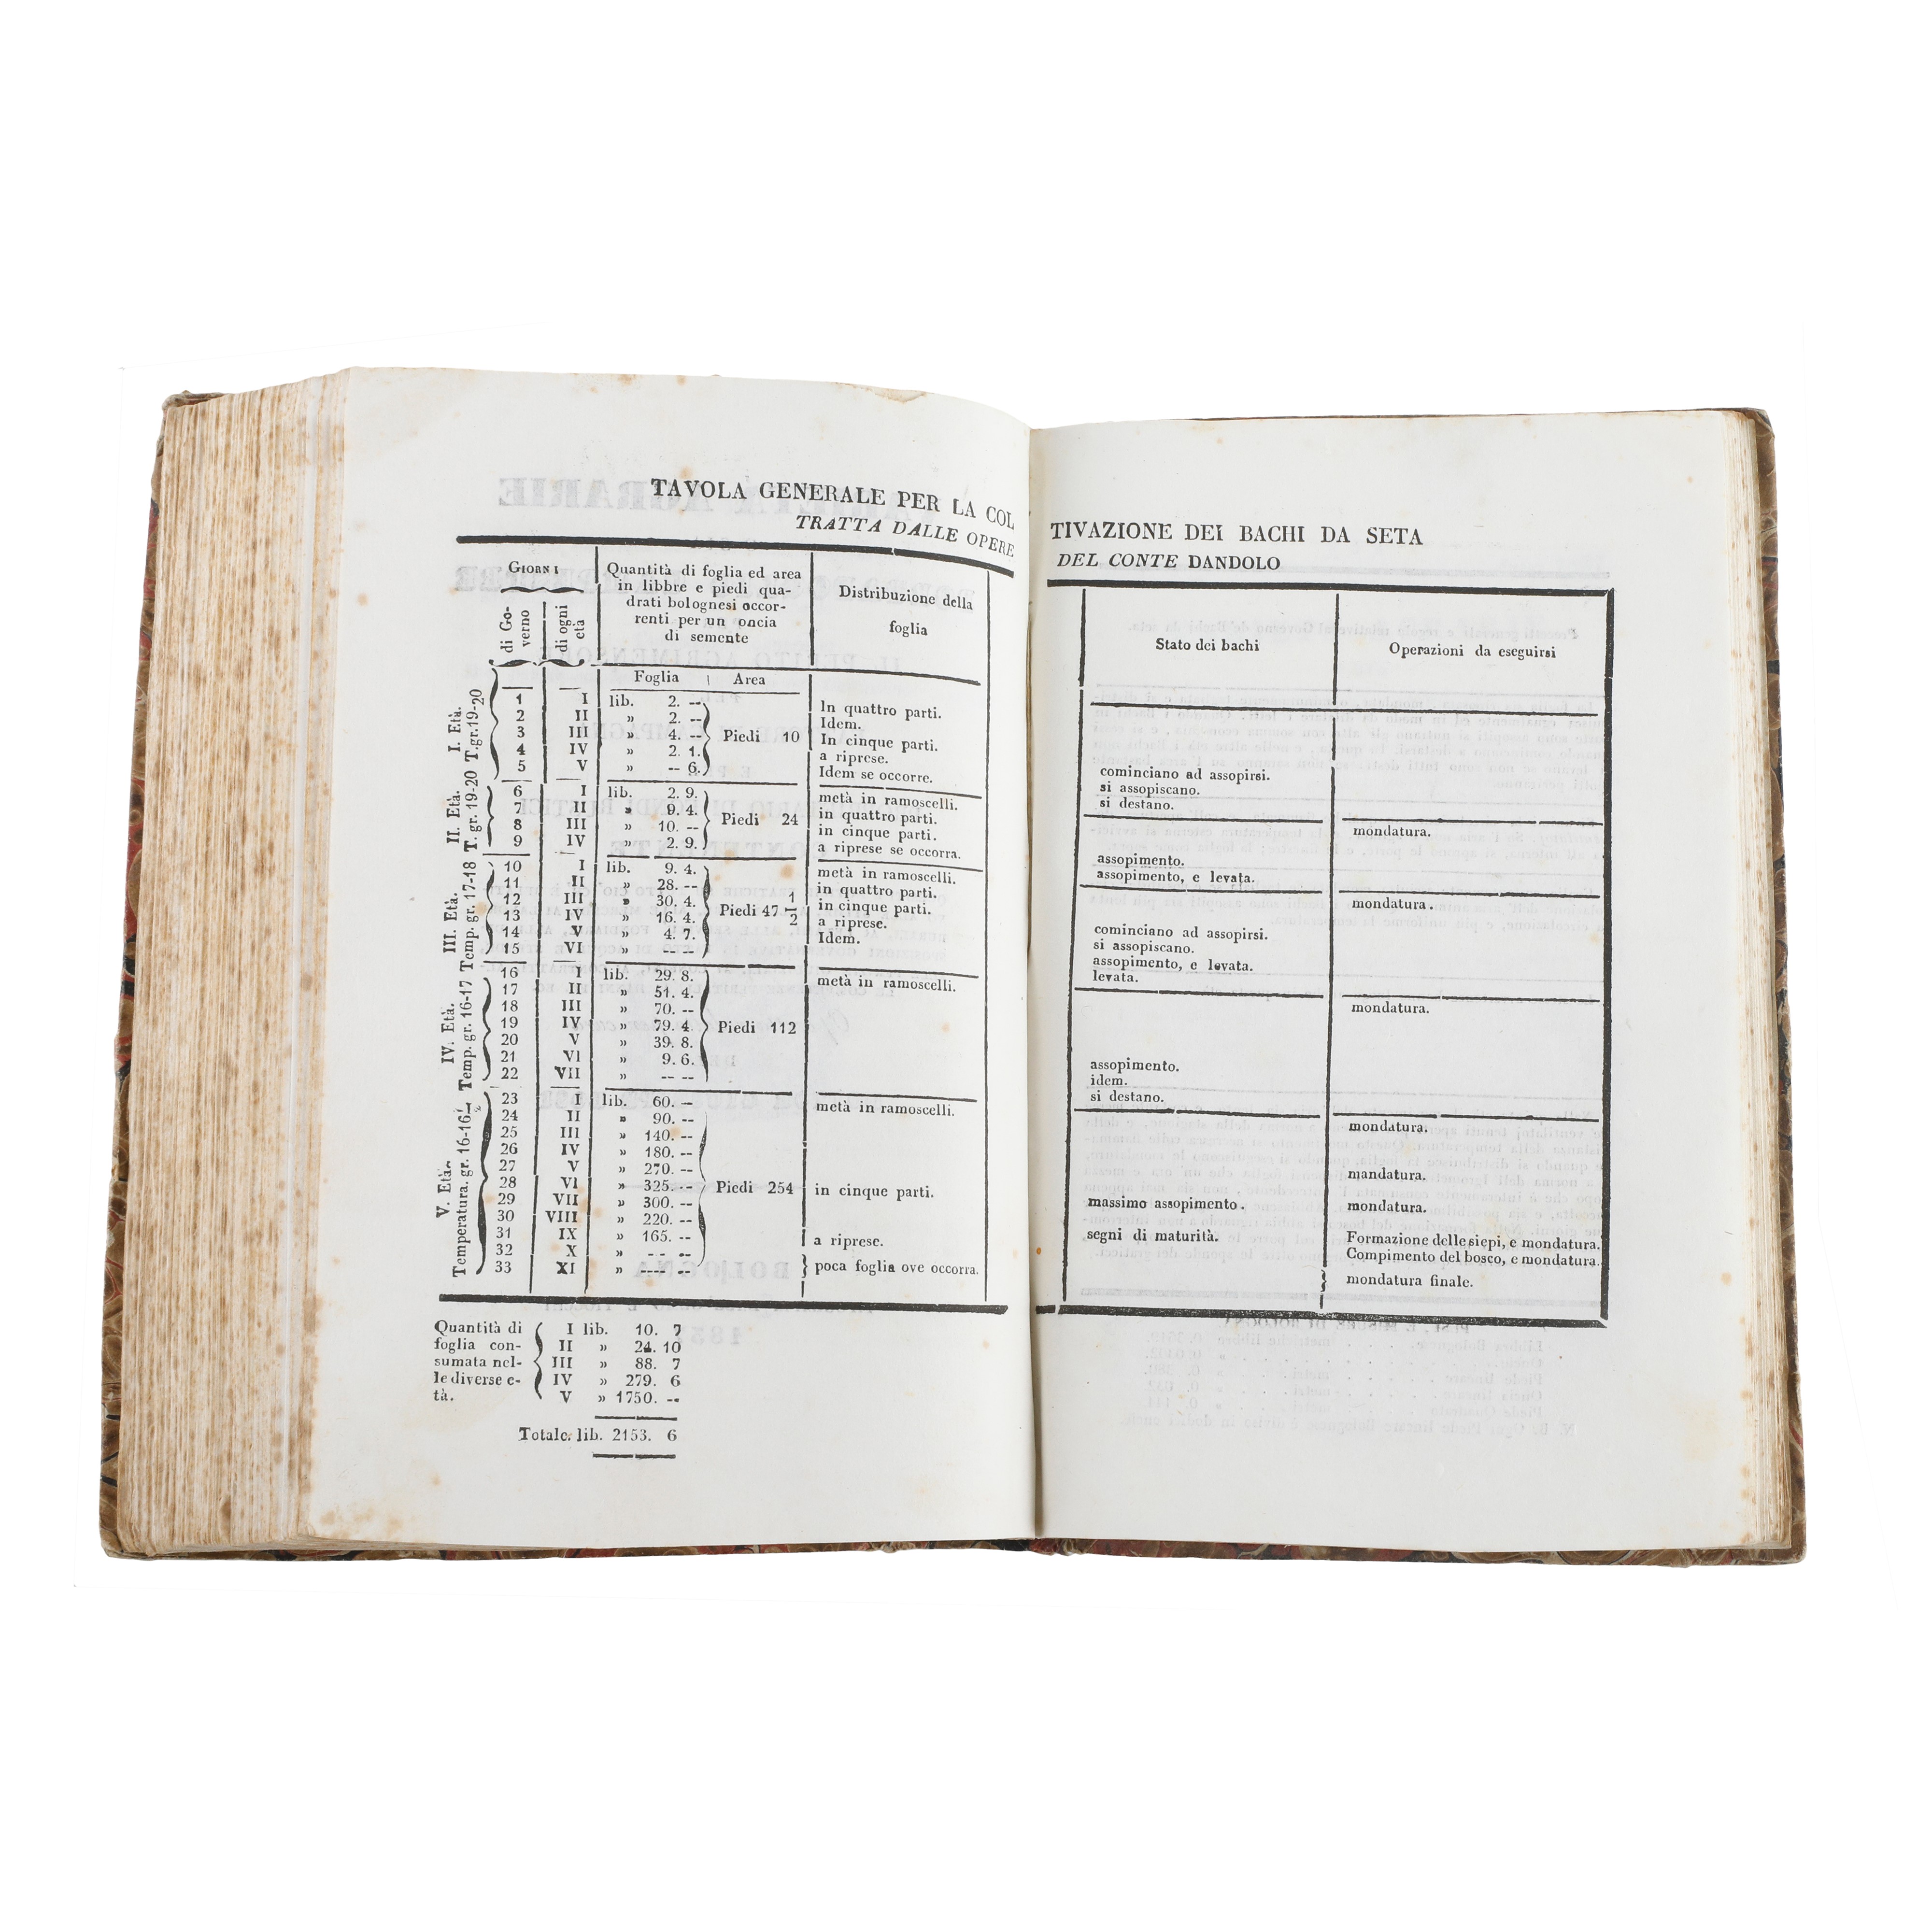 TAVOLA GENERALE PER LA COL
TRATTA DALLE OPERE
GIORNI
di Go-
verno
di ogni
età
Quantità di foglia ed area
in libbre e piedi qua-
drati bolognesi occor-
renti per un oncia
di semente
Distribuzione della
foglia
Foglia Area
I. Età.
T.gr.19-20
1 I lib. 2. -- In quattro parti.
2 II » 2. -- Idem.
3 III » 4. -- Piedi 10 In cinque parti.
4 IV » 2. 1. a riprese.
5 V » -- 6. Idem se occorre.
II. Età.
T. gr. 19-20
6 I lib. 2. 9. metà in ramoscelli.
7 II » 9. 4. in quattro parti.
8 III » 10. -- Piedi 24 in cinque parti.
9 IV » 2. 9. a riprese se occorra.
III. Età.
Temp. gr. 17-18
10 I lib. 9. 4. metà in ramoscelli.
11 II » 28. -- in quattro parti.
12 III » 30. 4. Piedi 47 1/2 in cinque parti.
13 IV » 16. 4. a riprese.
14 V » 4. 7. Idem.
15 VI » -- --
IV. Età.
Temp. gr. 16-17
16 I lib. 29. 8. metà in ramoscelli.
17 II » 51. 4.
18 III » 70. --
19 IV » 79. 4. Piedi 112
20 V » 39. 8.
21 VI » 9. 6.
22 VII » -- --
V. Età.
Temperatura. gr. 16-16
23 I lib. 60. -- metà in ramoscelli.
24 II » 90. --
25 III » 140. --
26 IV » 180. --
27 V » 270. --
28 VI » 325. -- Piedi 254 in cinque parti.
29 VII » 300. --
30 VIII » 220. --
31 IX » 165. -- a riprese.
32 X » -- --
33 XI » ---- -- poca foglia ove occorra.
Quantità di I lib. 10. 7
foglia con- II » 24. 10
sumata nel- III » 88. 7
le diverse e- IV » 279. 6
tà. V » 1750. --
Totale. lib. 2153. 6
TIVAZIONE DEI BACHI DA SETA
DEL CONTE DANDOLO
Stato dei bachi Operazioni da eseguirsi
cominciano ad assopirsi.
si assopiscano.
si destano.
mondatura.
assopimento.
assopimento, e levata.
mondatura.
cominciano ad assopirsi.
si assopiscano.
assopimento, e levata.
levata.
mondatura.
assopimento.
idem.
si destano.
mondatura.
mandatura.
massimo assopimento. mondatura.
segni di maturità. Formazione delle siepi, e mondatura.
Compimento del bosco, e mondatura.
mondatura finale.